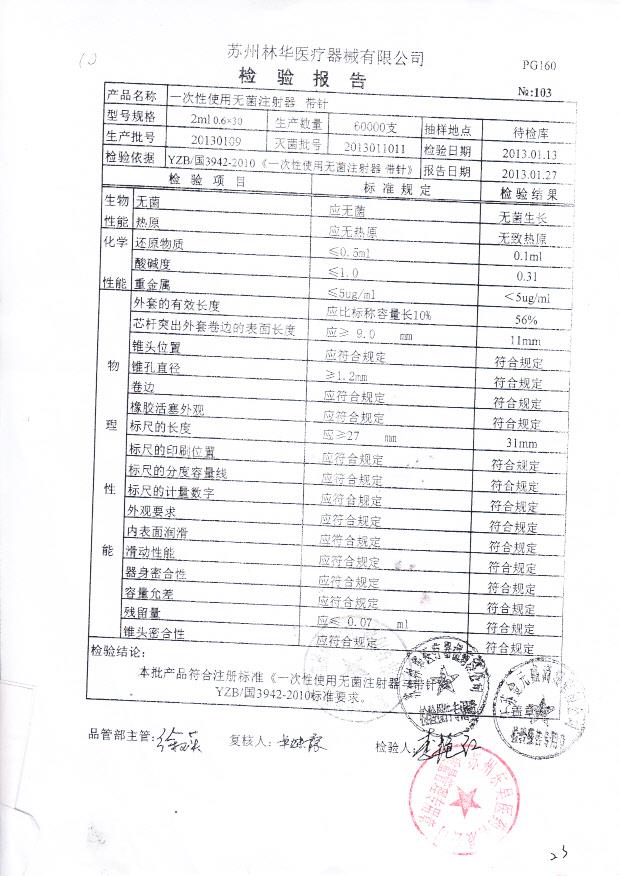 10
苏州林华医疗器械有限公司
PG160
检 验 报 告
№:103
产品名称 一次性使用无菌注射器 带针
型号规格 2ml 0.6×30 生产数量 60000支 抽样地点 待检库
生产批号 20130109 灭菌批号 2013011011 检验日期 2013.01.13
检验依据 YZB/国3942-2010《一次性使用无菌注射器 带针》 报告日期 2013.01.27
检 验 项 目 标 准 规 定 检 验 结 果
生物性能 无菌 应无菌 无菌生长
热原 应无热原 无致热原
化学性能 还原物质 ≤0.5ml 0.1ml
酸碱度 ≤1.0 0.31
重金属 ≤5ug/ml <5ug/ml
物理性能 外套的有效长度 应比标称容量长10% 56%
芯杆突出外套卷边的表面长度 应≥ 9.0 mm 11mm
锥头位置 应符合规定 符合规定
锥孔直径 ≥1.2mm 符合规定
卷边 应符合规定 符合规定
橡胶活塞外观 应符合规定 符合规定
标尺的长度 应≥27 mm 31mm
标尺的印刷位置 应符合规定 符合规定
标尺的分度容量线 应符合规定 符合规定
标尺的计量数字 应符合规定 符合规定
外观要求 应符合规定 符合规定
内表面润滑 应符合规定 符合规定
滑动性能 应符合规定 符合规定
器身密合性 应符合规定 符合规定
容量允差 应符合规定 符合规定
残留量 应≤ 0.07 ml 符合规定
锥头密合性 应符合规定 符合规定
检验结论:
本批产品符合注册标准《一次性使用无菌注射器 带针》
YZB/国3942-2010标准要求。
盖章
品管部主管: 复核人: 检验人: